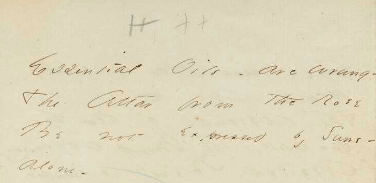 Essential Oils - are wrung -
The Attar from the Rose
Be not expressed by Suns -
alone -